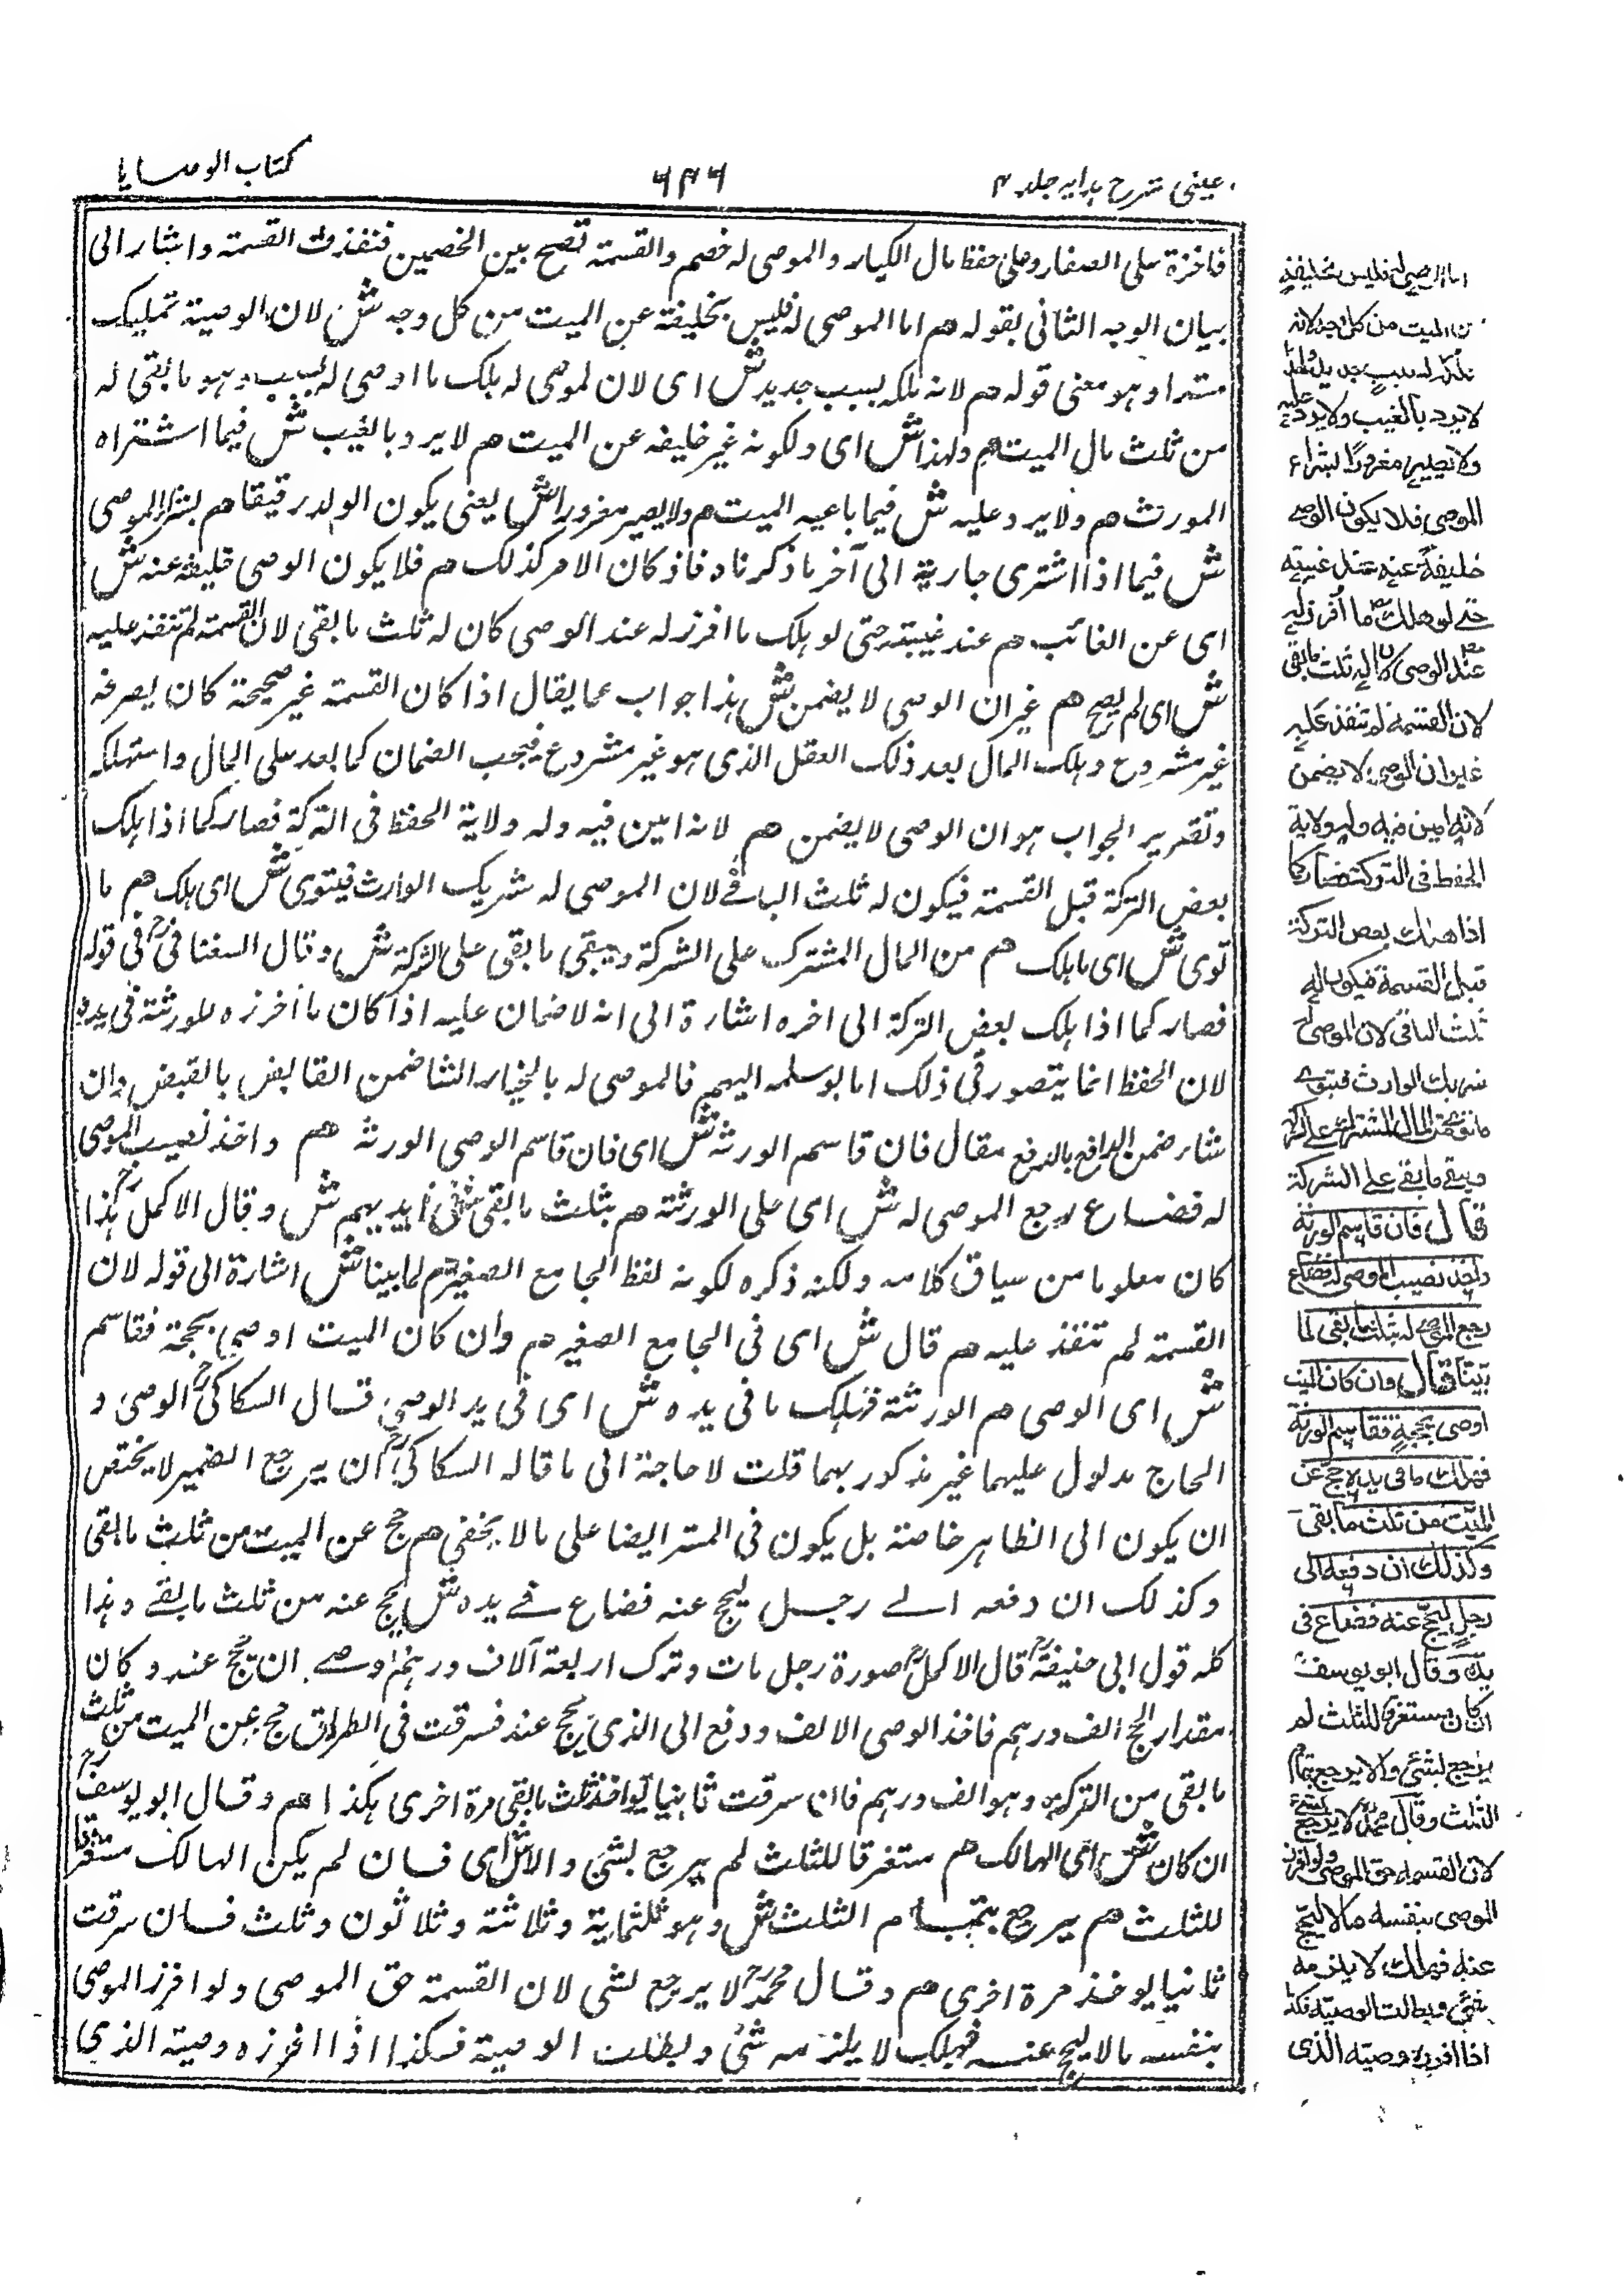 عینی شرح ہدایہ جلد ۴
۶۴۶
کتاب الوصایا
فاخزة على الصغار وعلى حفظ مال الكبار والموصى له خصم والقسمة تصح بين الخصمين فنفذت القسمة واشار الى
بيان الوجه الثانى بقوله هم اما الموصى له فليس بخليفة عن الميت من كل وجه ش لان الوصية تمليك
مبتدا وهو معنى قوله هم لانه ملكه بسبب جديد ش اى لان لموصى له ملك ما اوصى له بسبب وهو ما بقى له
من ثلث مال الميت هم ولهذا ش اى ولكونه غير خليفه عن الميت هم لا يرد بالعيب ش فيما اشتراه
المورث هم ولا يرد عليه ش فيما باعيه الميت هم ولا يصير مغرورا ش يعنى يكون الولد رقيقا هم بشراء الموصى
ش فيما اذا اشترى جارية الى آخر ما ذكرناه فاذ كان الامر كذلك هم فلا يكون الوصى خليفة عنه ش
اى عن الغائب هم عند غيبته حتى لو هلك ما افرز له عند الوصى كان له ثلث ما بقى لان القسمة لم تنفذ عليه
ش اى لم يصح هم غير ان الوصى لا يضمن ش هذا جواب عما يقال اذا كان القسمة غير صحيحة كان يصرفه
غير مشروع وهلك المال بعد ذلك العقل الذى هو غير مشروع فيجب الضمان كما بعد على المال واستهلكه
وتقرير الجواب هو ان الوصى لا يضمن هم لانه امين فيه وله ولاية الحفظ فى التركة فصار كما اذا هلك
بعض التركة قبل القسمة فيكون له ثلث الباقے لان الموصى له شريك الوارث فيتوى ش اى هلك هم ما
توى ش اى ما هلك هم من المال المشترك على الشركة ويبقى ما بقى على الشركة ش وقال السغناقى رح فى قوله
فصار كما اذا هلك بعض التركة الى اخره اشارة الى انه لا ضمان عليه اذا كان ما افرزه للورثة فى يده
لان الحفظ انما يتصور فى ذلك اما لو سلمه اليهم فالموصى له بالخيار انشا ضمن القابض بالقبض وان
شاء ضمن الدافع بالدفع مقال فان قاسم الورثه ش اى فان قاسم الوصى الورثه هم واخذ نصيب الموصى
له فضاع رجع الموصى له ش اى على الورثة هم بثلث ما بقى ش فى ايديهم ش وقال الاكمل رح هذا
كان معلوما من سياق كلامه ولكنه ذكره لكونه لفظ الجامع الصغير هم لما بينا ش اشارة الى قوله لان
القسمة لم تنفذ عليه هم قال ش اى فى الجامع الصغير هم وان كان الميت اوصى بحجة فقاسم
ش اى الوصى هم الورثة فهلك ما فى يده ش اى فى يد الوصى قال السكاكى رح الوصى و
الحاج مدلول عليهما غير مذكور بهما قلت لا حاجة الى ما قاله السكاكى رح ان يرجع الضمير لا يختص
ان يكون الى الظاهر خاصة بل يكون فى المستر ايضا على مالا يخفى هم حج عن الميت من ثلث ما بقى
وكذلك ان دفعه الے رجل ليحج عنه فضاع فے يده ش يحج عنه من ثلث ما بقے وهذا
كله قول ابى حنيفة رح قال الاكمل رح صورة رجل مات وترك اربعة آلاف درهم اوصے ان يحج عنه و كان
مقدار الحج الف درهم فاخذ الوصى الالف ودفع الى الذى يحج عنه فسرقت فى الطريق حج عن الميت من ثلث
ما بقى من التركه وهو الف درهم فان سرقت ثانيا يواخذ ثلث ما بقى مرة اخرى هكذا هم وقال ابو يوسف رح
ان كان ش اى الهالك هم مستغرقا للثلث لم يرجع بشئ والا ش اى فان لم يكن الهالك مستغرقا
للثلث هم يرجع بتمام الثلث ش وهو ثلثماية وثلاثة وثلاثون وثلث فان سرقت
ثانيا يوخذ مرة اخرى هم وقال محمد رح لا يرجع لشى لان القسمة حق الموصى ولو افرز الموصى
بنفسه مالا ليحج عنه فهلك لا يلزمه شئ وبطلت الوصية فكذا اذا افرزه وصية الذى
اما الموصى له فليس بخليفة
عن الميت من كل وجه لانه
ملكه بسبب جديد ولهذا
لا يرد بالعيب ولا يرد عليه
ولا يصير مغرورًا بشراء
الموصى فلا يكون الوصى
خليفةً عنه عند غيبته
حتے لو هلك ما افرز له
عند الوصى كان له ثلث ما بقى
لان القسمة لم تنفذ عليه
غير ان الوصى لا يضمن
لانه امين فيه وله ولاية
الحفظ فى التركة فصار كما
اذا هلك بعض التركة
قبل القسمة فيكون له
ثلث الباقى لان الموصى له
شريك الوارث فيتوى
ويبقے ما بقى على الشركة
قال فان قاسم الورثة
واخذ نصيب الموصى له فضاع
رجع الموصى له بثلث ما بقى لما
بيّنا قال وان كان الميت
اوصى بحجةٍ فقاسم الورثة
فهلك ما فى يده حج عن
الميت من ثلث ما بقى
وكذلك ان دفعه الى
رجلٍ ليحجّ عنه فضاع فى
يده وقال ابو يوسف
ان كان مستغرقا للثلث لم
يرجع بشئ والا يرجع بتمام
الثلث وقال محمد لا يرجع بشئ
لان القسمة حق الموصى ولو افرز
الموصى بنفسه مالا ليحج
عنه فهلك لا يلزمه
شئ وبطلت الوصية فكذا
اذا افرزه وصيه الذى